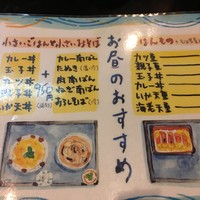 小さいごはんと小さいおそば
カレー丼
玉子丼
カツ丼
親子丼
いか天丼
+
950円
カレー南ばん
たぬき
肉南ばん
ねぎ南ばん
おろしそば
お昼のおすすめ
はんもの
カツ重
親子重
玉子重
カレー丼
いか天重
海老天重